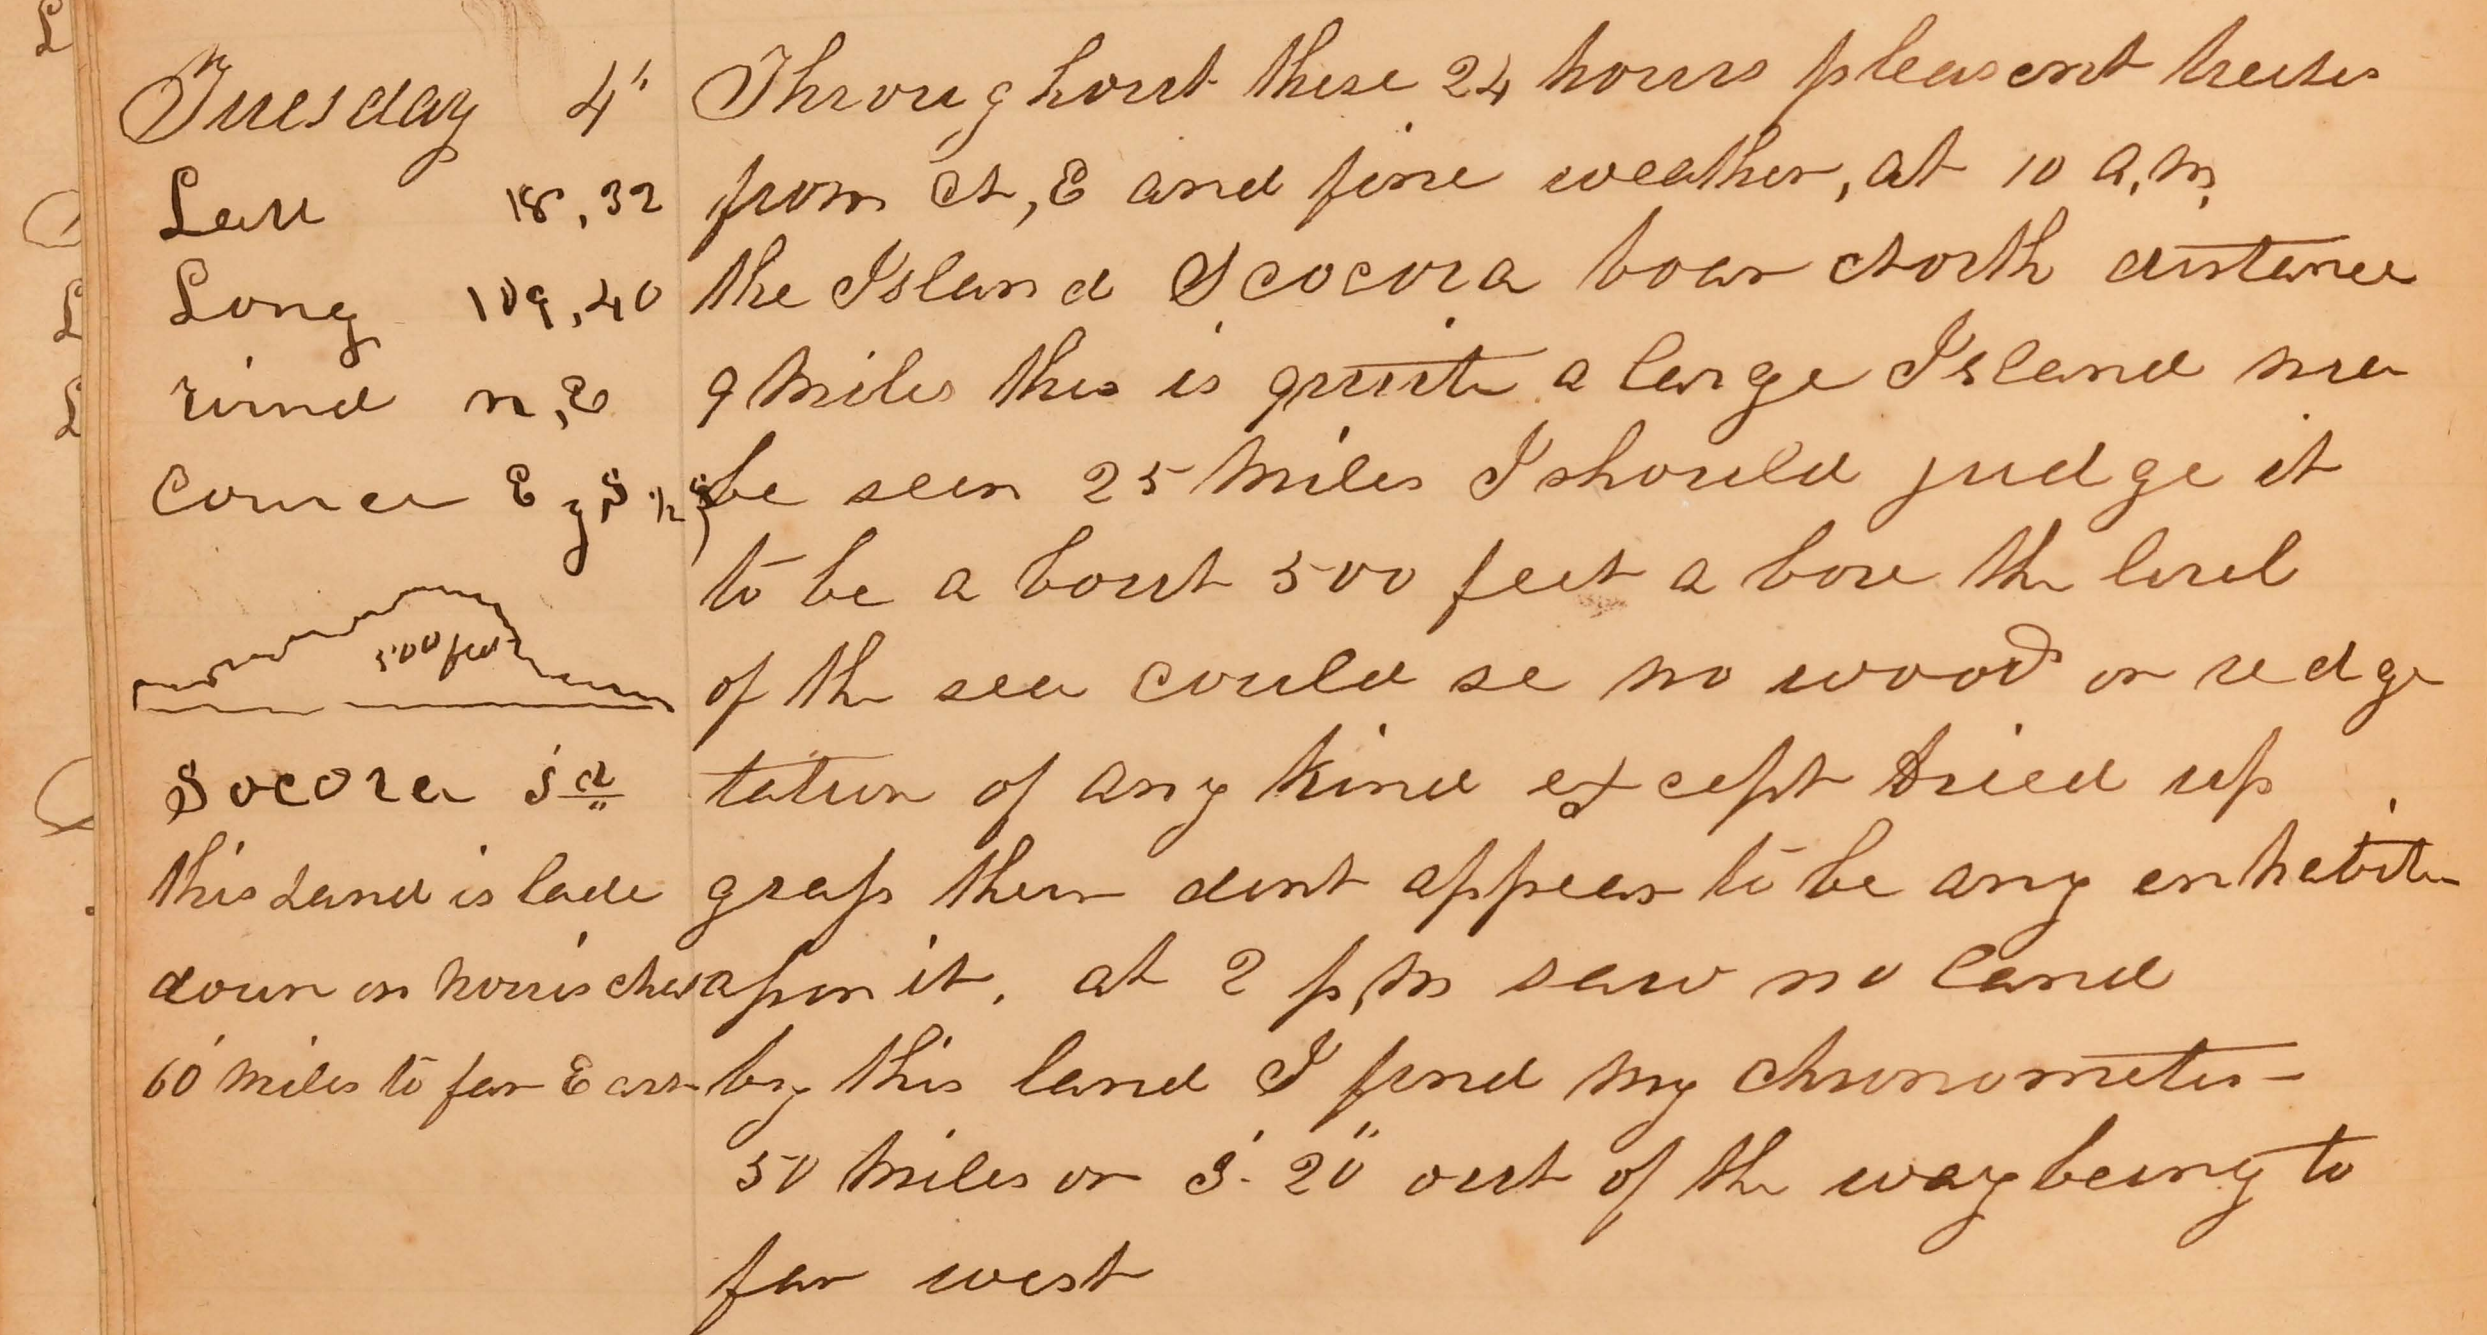 Tuesday 4"
Latt 18,32
Long 109,40
wind n,E
Course E by S 1/2 S
500 feet
Socora Id
this Land is lade
down on Norris chart
60 miles to far East
Throughout these 24 hours pleasent breeses
from N,E and fine weather, at 10 a,m,
the Island Scocora boar North distance
9 miles this is quite a large Island
be seen 25 miles I should judge it
to be a bout 500 feet a bove the level
of the sea could se no wood or vedge
tation of any kind except dried up
grass ther dont appear to be any enhabite
apon it, at 2 p,m saw no land
by this land I find my chronometer
50 miles or 3'. 20" out of the way being to
far west